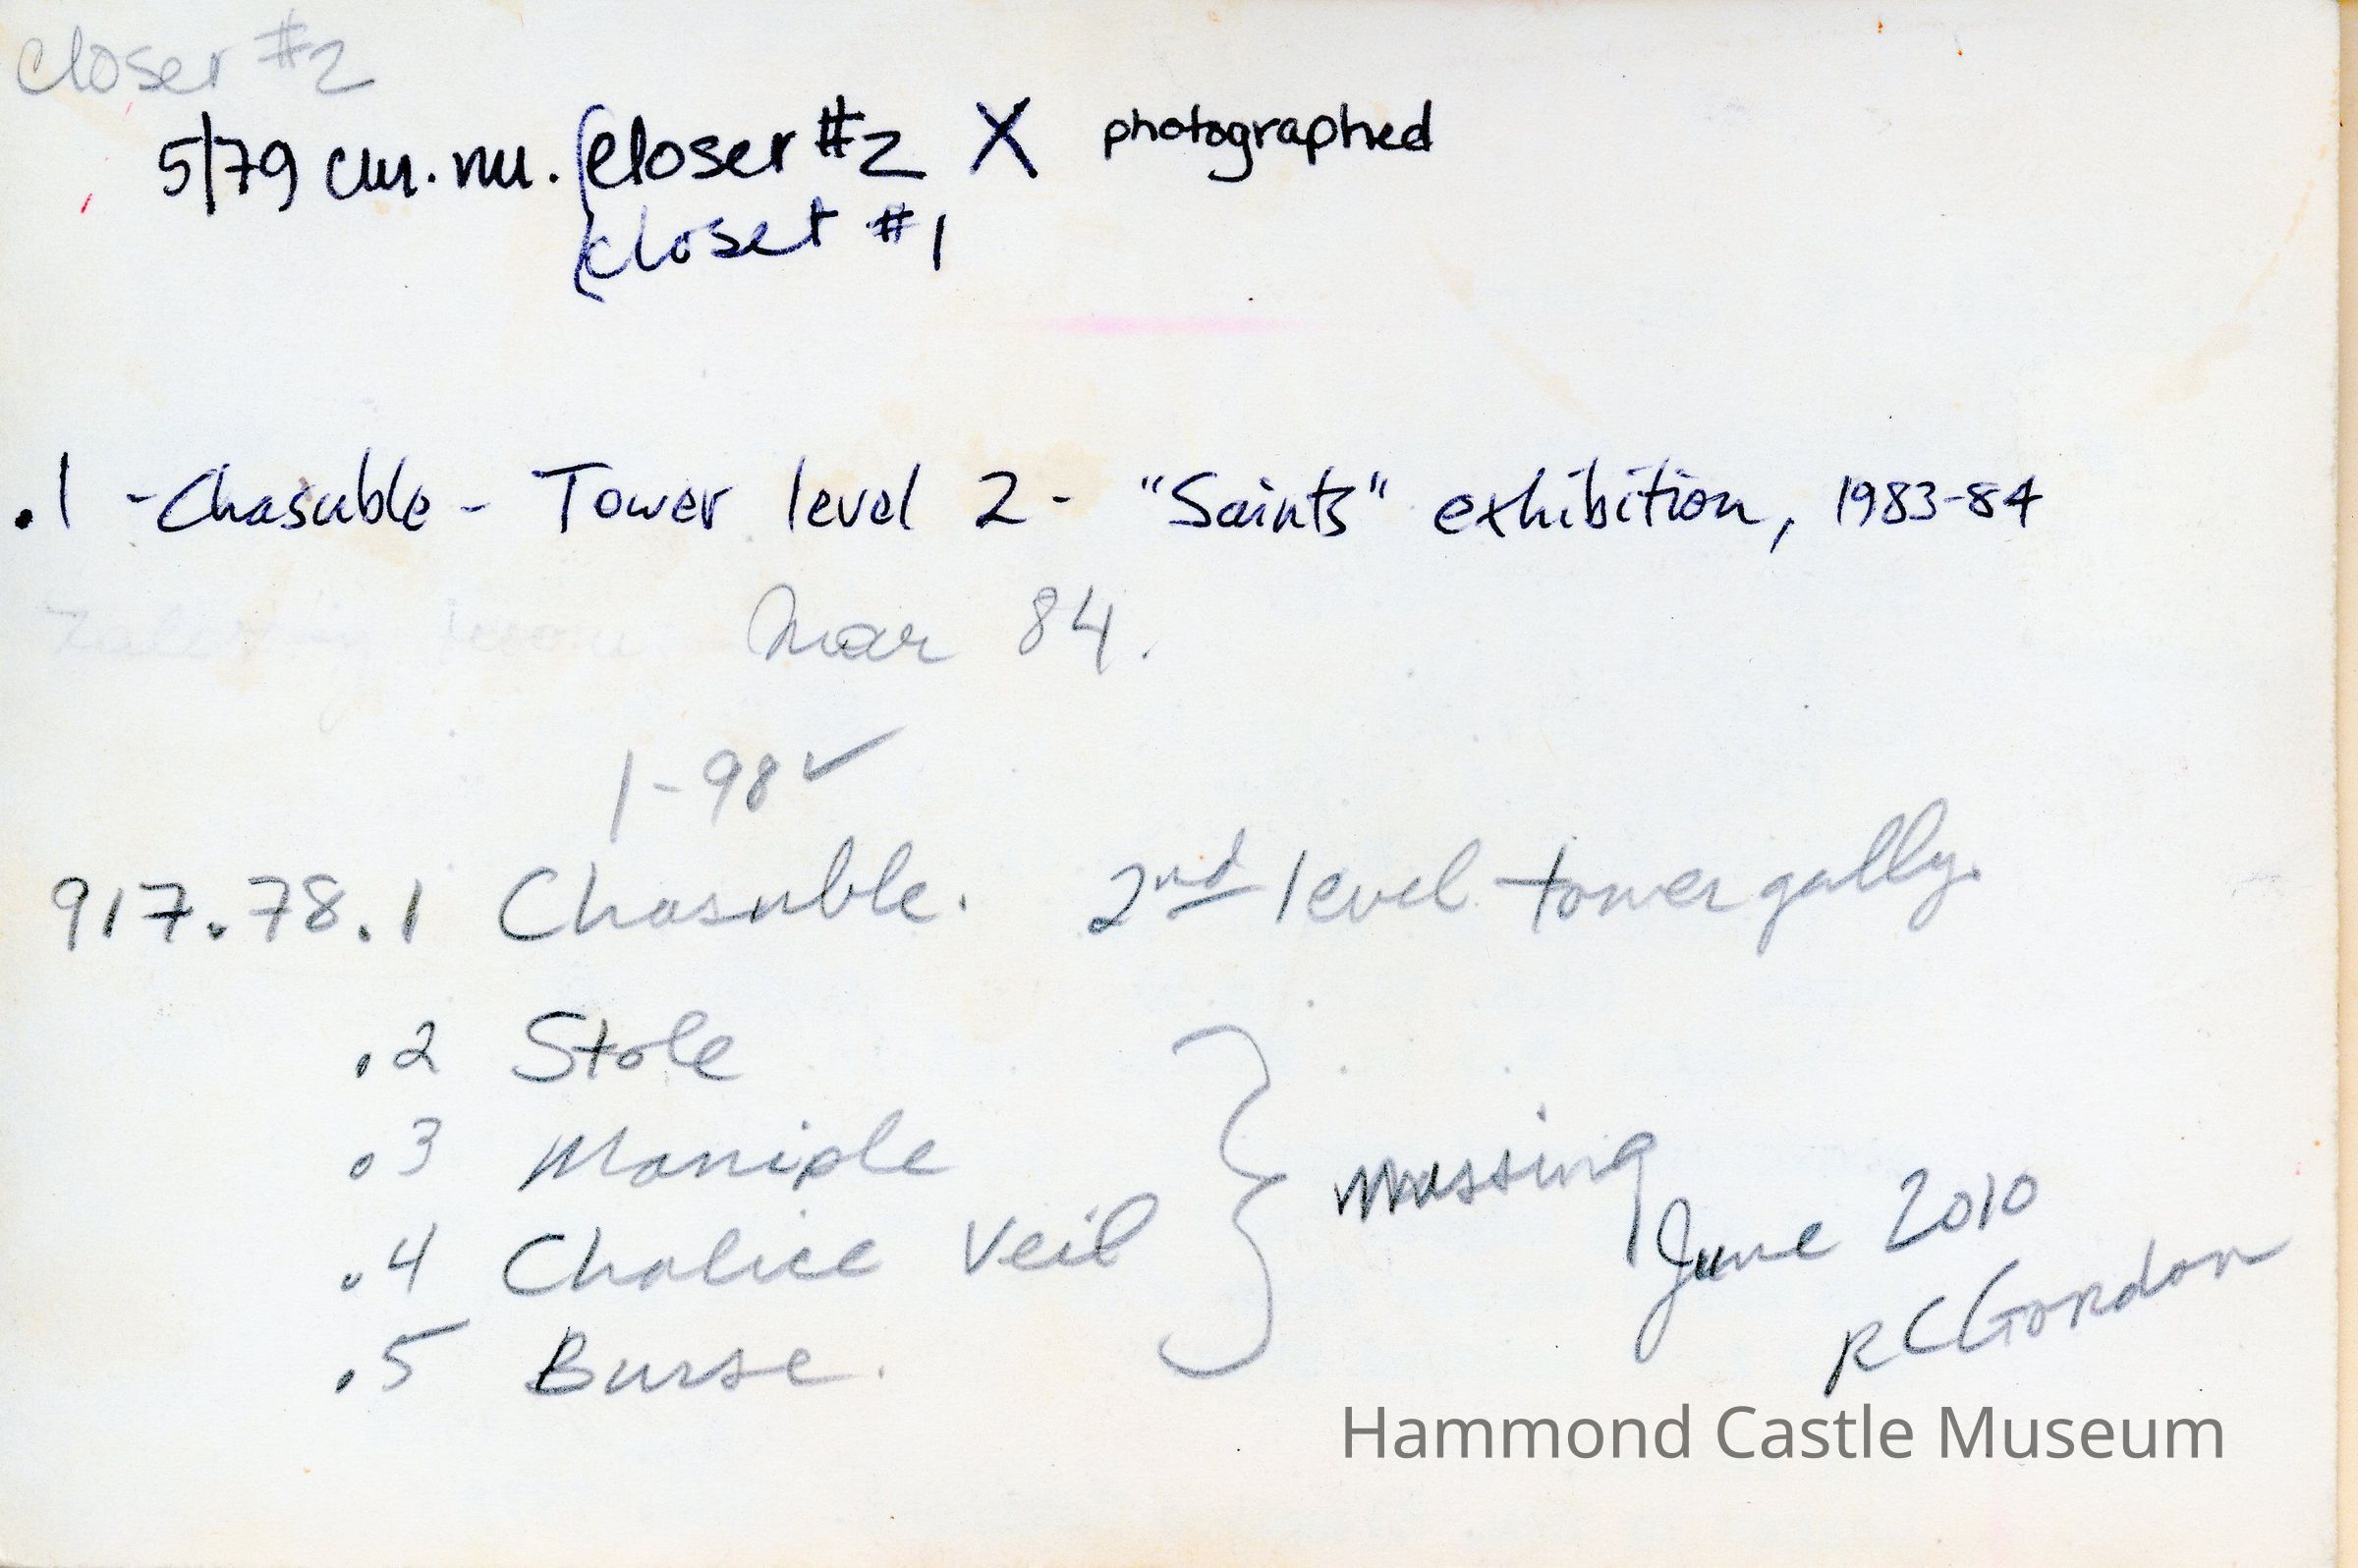 closer #2
5/79 cur. nu. { closer #2 X photographed
closet #1
.1 - Chasuble - Tower level 2 - "Saints" exhibition, 1983-84
Mar 84.
1-98 ✓
917.78.1 Chasuble. 2nd level tower gally.
.2 Stole
.3 Maniple
.4 Chalice Veil
.5 Burse.
} missing
June 2010
RCGordon
Hammond Castle Museum